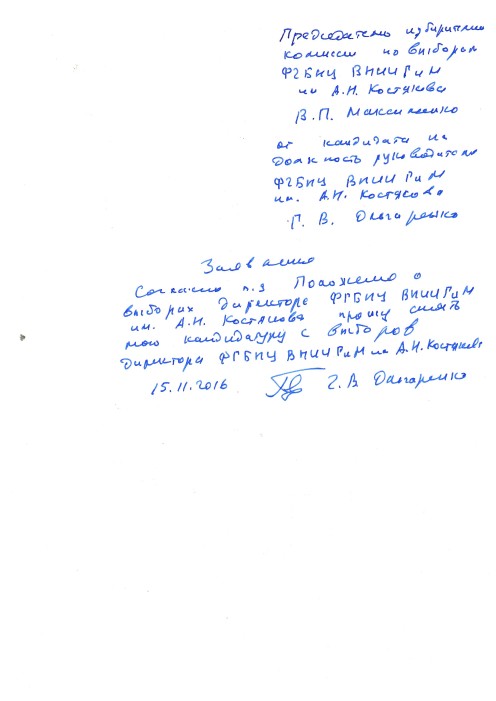 Председателю избирательной
комиссии по выборам
ФГБНЦ ВНИИГиМ
им А.Н. Костякова
В.П. Максименко
от кандидата на
должность руководителя
ФГБНЦ ВНИИГиМ
им. А.Н. Костякова
Г. В. Ольгаренко
Заявление
Согласно п.9 Положения о
выборах директора ФГБНЦ ВНИИГиМ
им. А.Н. Костякова прошу снять
мою кандидатуру с выборов
директора ФГБНЦ ВНИИГиМ им А.Н. Костякова
15.11.2016 Г. В. Ольгаренко